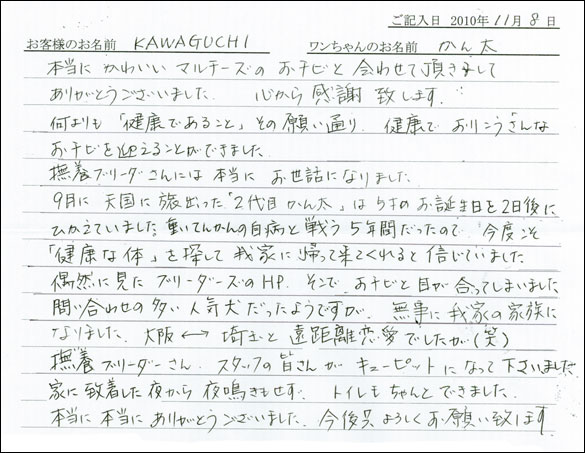 ご記入日 2010年 11月 8日
お客様のお名前 KAWAGUCHI ワンちゃんのお名前 かん太
本当に かわいい マルチーズの おチビと 会わせて頂きまして
ありがとうございました. 心から 感謝 致します.
何よりも「健康であること」その願い通り. 健康で おりこうさんな
おチビを迎えることができました.
撫養ブリーダーさんには 本当に お世話になりました.
9月に 天国に 旅出った「2代目 かん太」は 5才の お誕生日を2日後に
ひかえていました. 重いてんかんの自病と戦う 5年間だったので 今度こそ
「健康な体」を探して 我家に 帰って来てくれると 信じていました
偶然に見た ブリーダーズのHP. そこで おチビと目が合ってしまいました
問い合わせの多い人気犬だったようですが. 無事に我家の家族に
なりました. 大阪 ←→ 埼玉と 遠距離恋愛でしたが (笑)
撫養ブリーダーさん. スタッフの皆さんが キューピットになって下さいました
家に到着した夜から 夜鳴きもせず. トイレもちゃんとできました.
本当に 本当に ありがとうございました. 今後共 よろしくお願い致します